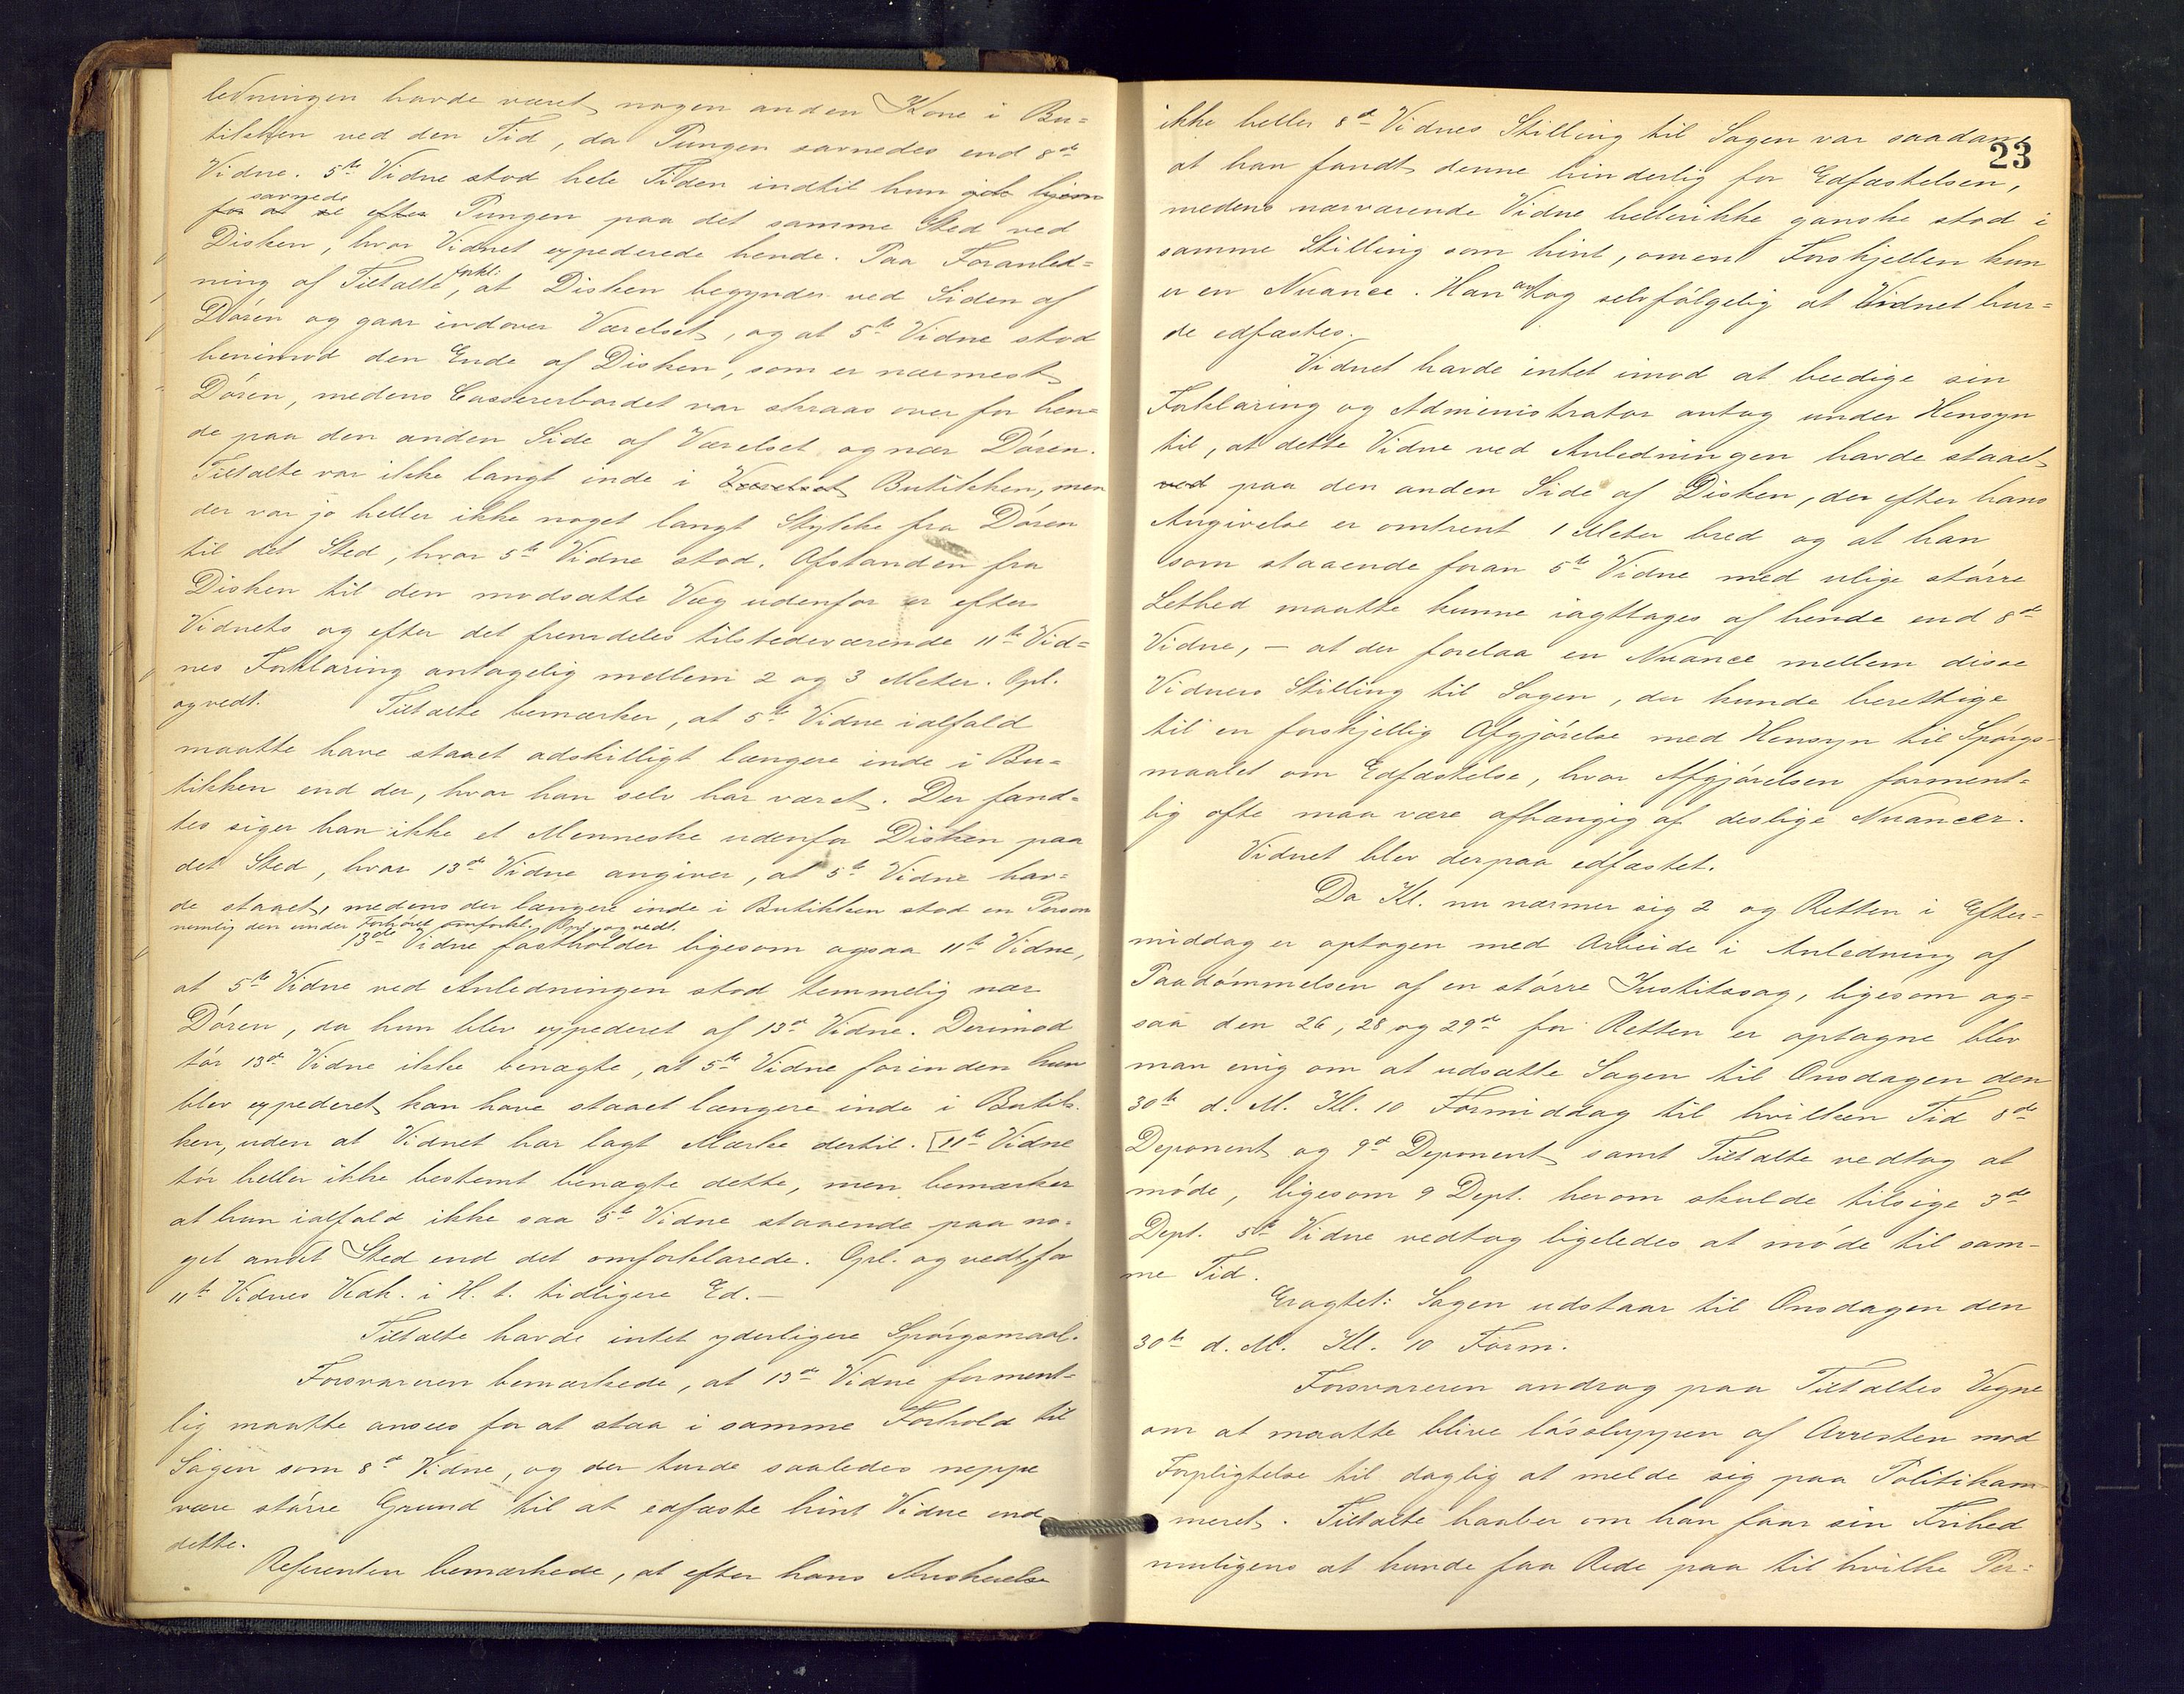 ledningen havde været nogen anden Kone i Bu=
tikken ved den Tid, da Pungen savnedes end 8de
Vidne. 5te Vidne stod hele Tiden indtil hun gik hjem
savnede
for at se efter Pungen paa det samme Sted ved
Disken, hvor Vidnet expederede hende. Paa Foranled=
ning af Tiltalte, forkl: at Disken begynder ved Siden af
Døren og gaar indover Værelset, og at 5te Vidne stod
henimod den Ende af Disken, som er nærmest
Døren, medens Cassererbordet var skraas over for hen=
de paa den anden Side af Værelset og nær Døren.
Tiltalte var ikke langt inde i Værelset Butikken, men
der var jo heller ikke noget langt Stykke fra Døren
til det Sted, hvor 5te Vidne stod. Afstanden fra
Disken til den modsatte Væg udenfor er efter
Vidnets og efter det fremdeles tilstedeværende 11te Vid=
nes Forklaring antagelig mellem 2 og 3 Meter. Opl.
og vedt. Tiltalte bemærker, at 5te Vidne ialfald
maatte have staaet adskilligt længere inde i Bu=
tikken end der, hvor han selv har været. Der fand=
tes siger han ikke et Menneske udenfor Disken paa
det Sted, hvor 13de Vidne angiver, at 5te Vidne hav=
de staaet, medens der længere inde i Butikken stod en Person
nemlig den under Forhøret omforkl. Opl. og vedt.
13de Vidne fastholder ligesom ogsaa 11te Vidne,
at 5te Vidne ved Anledningen stod temmelig nær
Døren, da hun blev expederet af 13de Vidne. Derimod
tør 13de Vidne ikke benægte, at 5te Vidne forinden hun
blev expederet kan have staaet længere inde i Butik=
ken, uden at Vidnet har lagt Mærke dertil. [11te Vidne
tør heller ikke bestemt benægte dette, men bemærker
at hun ialfald ikke saa 5te Vidne staaende paa no=
get andet Sted end det omforklarede. Opl. og vedt, for
11te Vidnes Vedk. i H. t. tidligere Ed.—
Tiltalte havde intet yderligere Spørgsmaal.
Forsvareren bemærkede, at 13de Vidne forment=
lig maatte ansees for at staa i samme Forhold til
Sagen som 8de Vidne, og der turde saaledes neppe
være større Grund til at edfæste hint Vidne end
dette.
Referenten bemærkede, at efter hans Anskuelse
23
ikke heller 8de Vidnes Stilling til Sagen var saadan,
at han fandt denne hinderlig for Edfæstelsen,
medens nærværende Vidne hellerikke ganske stod i
samme Stilling som hint, omend Forskjellen kun
er en Nuance. Han antog selvfølgelig at Vidnet bur=
de edfæstes.
Vidnet havde intet imod at beedige sin
Forklaring og Administrator antog under Hensyn
til, at dette Vidne ved Anledningen havde staaet
ved paa den anden Side af Disken, der efter hans
Angivelse er omtrent 1 Meter bred og at han
som staaende foran 5te Vidne med ulige større
Lethed maatte kunne iagttages af hende end 8de
Vidne, — at der forelaa en Nuance mellem disse
Vidners Stilling til Sagen, der kunde berettige
til en forskjellig Afgjørelse med Hensyn til Spørgs=
maalet om Edfæstelse, hvor Afgjørelsen forment=
lig ofte maa være afhængig af deslige Nuancer.
Vidnet blev derpaa edfæstet.
Da Kl. nu nærmer sig 2 og Retten i Efter=
middag er optagen med Arbeide i Anledning af
Paadømmelsen af en større Justitssag, ligesom og=
saa den 26, 28 og 29de for Retten er optagne blev
man enig om at udsætte Sagen til Onsdagen den
30te d. M. Kl. 10 Formiddag til hvilken Tid 8de
Deponent og 9de Deponent samt Tiltalte vedtog at
møde, ligesom 9 Dept. herom skulde tilsige 3de
Dept. 5te Vidne vedtog ligeledes at møde til sam=
me Tid.
Eragtet: Sagen udstaar til Onsdagen den
30te d. M. Kl. 10 Form.
Forsvareren androg paa Tiltaltes Vegne
om at maatte blive løssluppen af Arresten mod
Forpligtelse til daglig at melde sig paa Politikam=
meret. Tiltalte haaber om han faar sin Frihed
muligens at kunde faa Rede paa til hvilke Per=